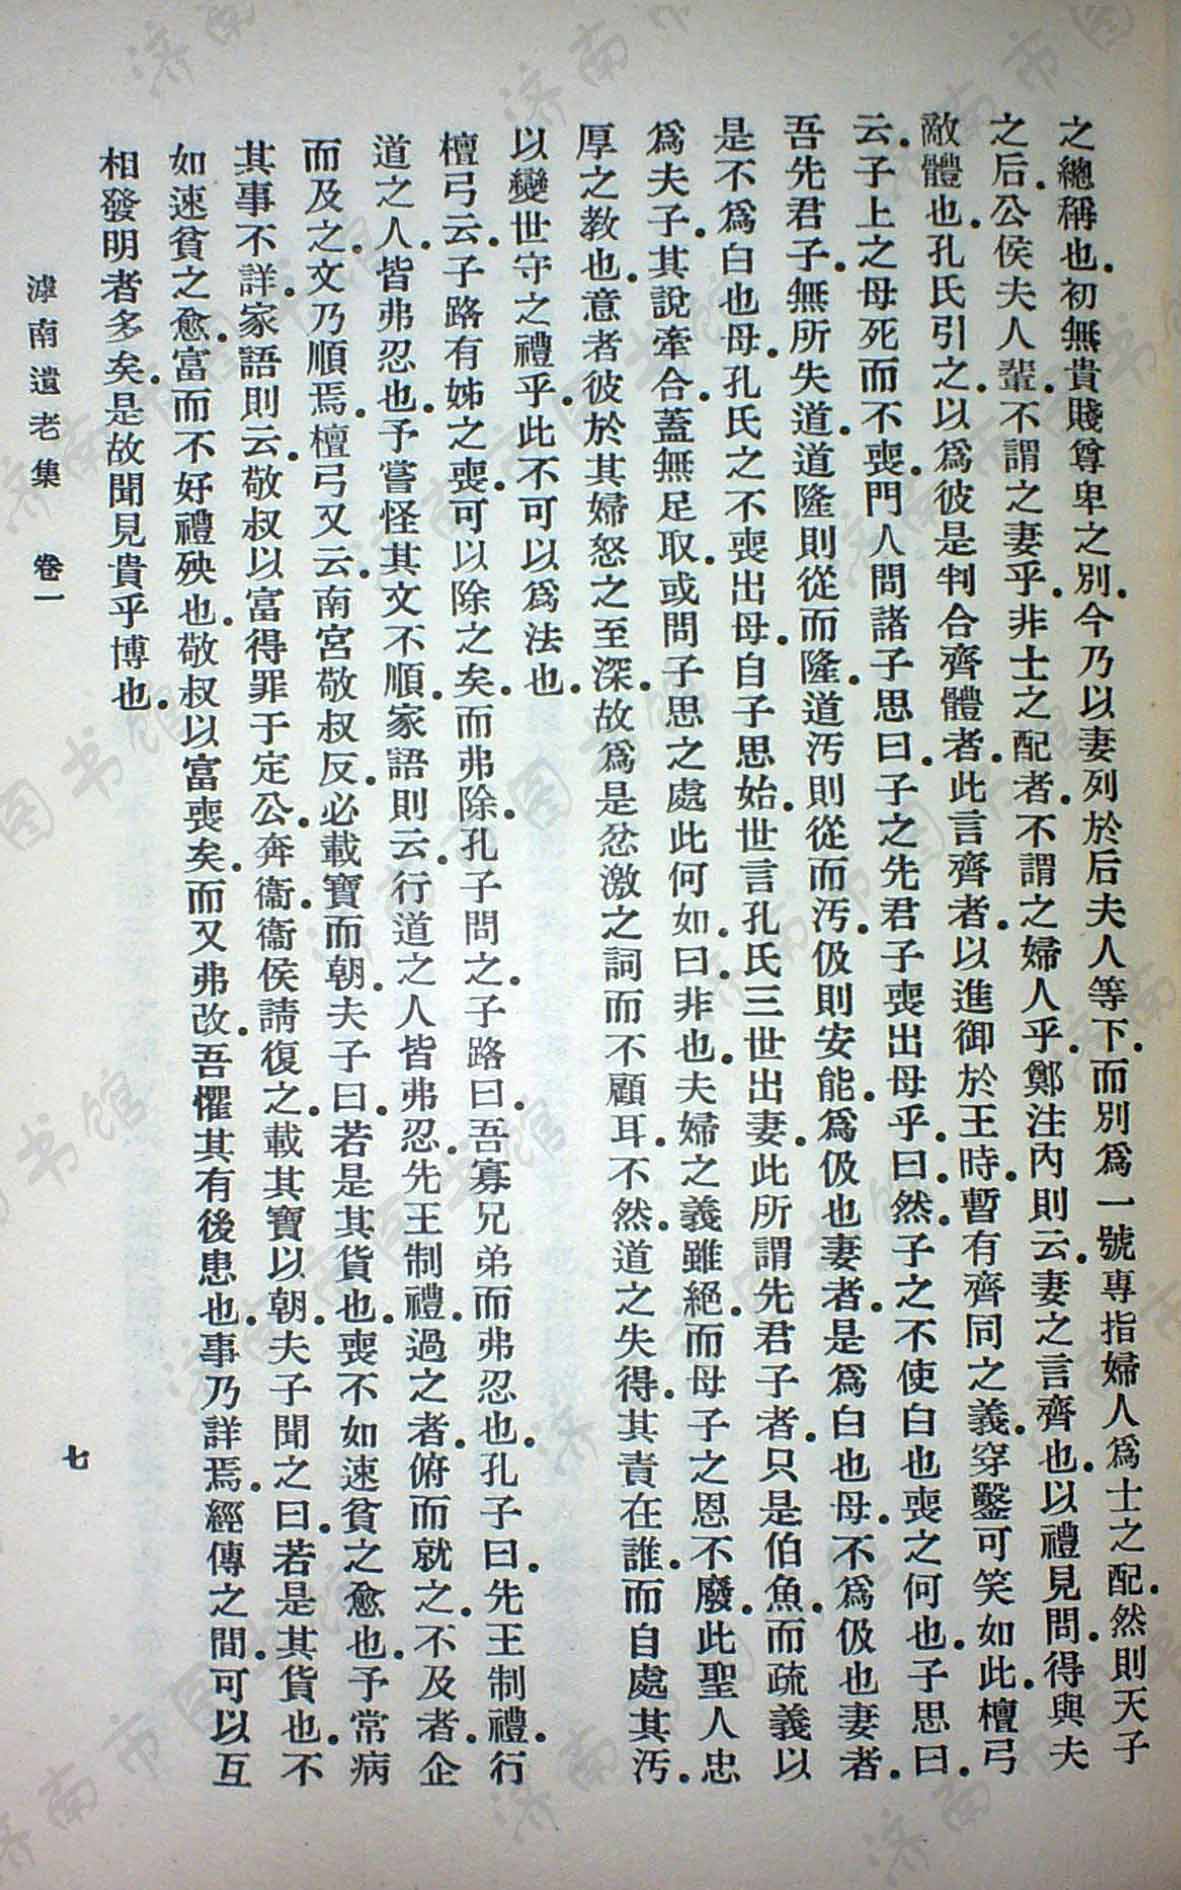 之總稱也．初無貴賤尊卑之別．今乃以妻列於后夫人等下．而別爲一號專指婦人爲士之配．然則天子
之后．公侯夫人輩．不謂之妻乎．非士之配者．不謂之婦人乎．鄭注內則云．妻之言齊也．以禮見問．得與夫
敵體也．孔氏引之．以爲彼是判合齊體者．此言齊者．以進御於王時．暫有齊同之義．穿鑿可笑如此．檀弓
云．子上之母死而不喪．門人問諸子思曰．子之先君子喪出母乎．曰．然．子之不使白也喪之何也．子思曰．
吾先君子．無所失道．道隆則從而隆．道汚則從而汚．伋則安能．爲伋也妻者．是爲白也母．不爲伋也妻者．
是不爲白也母．孔氏之不喪出母．自子思始．世言孔氏三世出妻．此所謂先君子者．只是伯魚．而疏義以
爲夫子．其說牽合．蓋無足取．或問子思之處此何如．曰．非也．夫婦之義雖絕．而母子之恩不廢．此聖人忠
厚之教也．意者彼於其婦怒之至深．故爲是忿激之詞而不顧耳．不然．道之失得．其責在誰．而自處其汚．
以變世守之禮乎．此不可以爲法也．
檀弓云．子路有姊之喪．可以除之矣．而弗除．孔子問之．子路曰．吾寡兄弟而弗忍也．孔子曰．先王制禮．行
道之人．皆弗忍也．予嘗怪其文不順．家語則云．行道之人皆弗忍．先王制禮．過之者．俯而就之．不及者．企
而及之．文乃順焉．檀弓又云．南宮敬叔反．必載寶而朝．夫子曰．若是其貨也．喪不如速貧之愈也．予常病
其事不詳．家語則云．敬叔以富得罪于定公．奔衞．衞侯請復之．載其寶以朝．夫子聞之曰．若是其貨也．不
如速貧之愈．富而不好禮殃也．敬叔以富喪矣．而又弗改．吾懼其有後患也．事乃詳焉．經傳之間．可以互
相發明者多矣．是故聞見貴乎博也．
滹南遺老集　卷一
七
濟南市图书馆